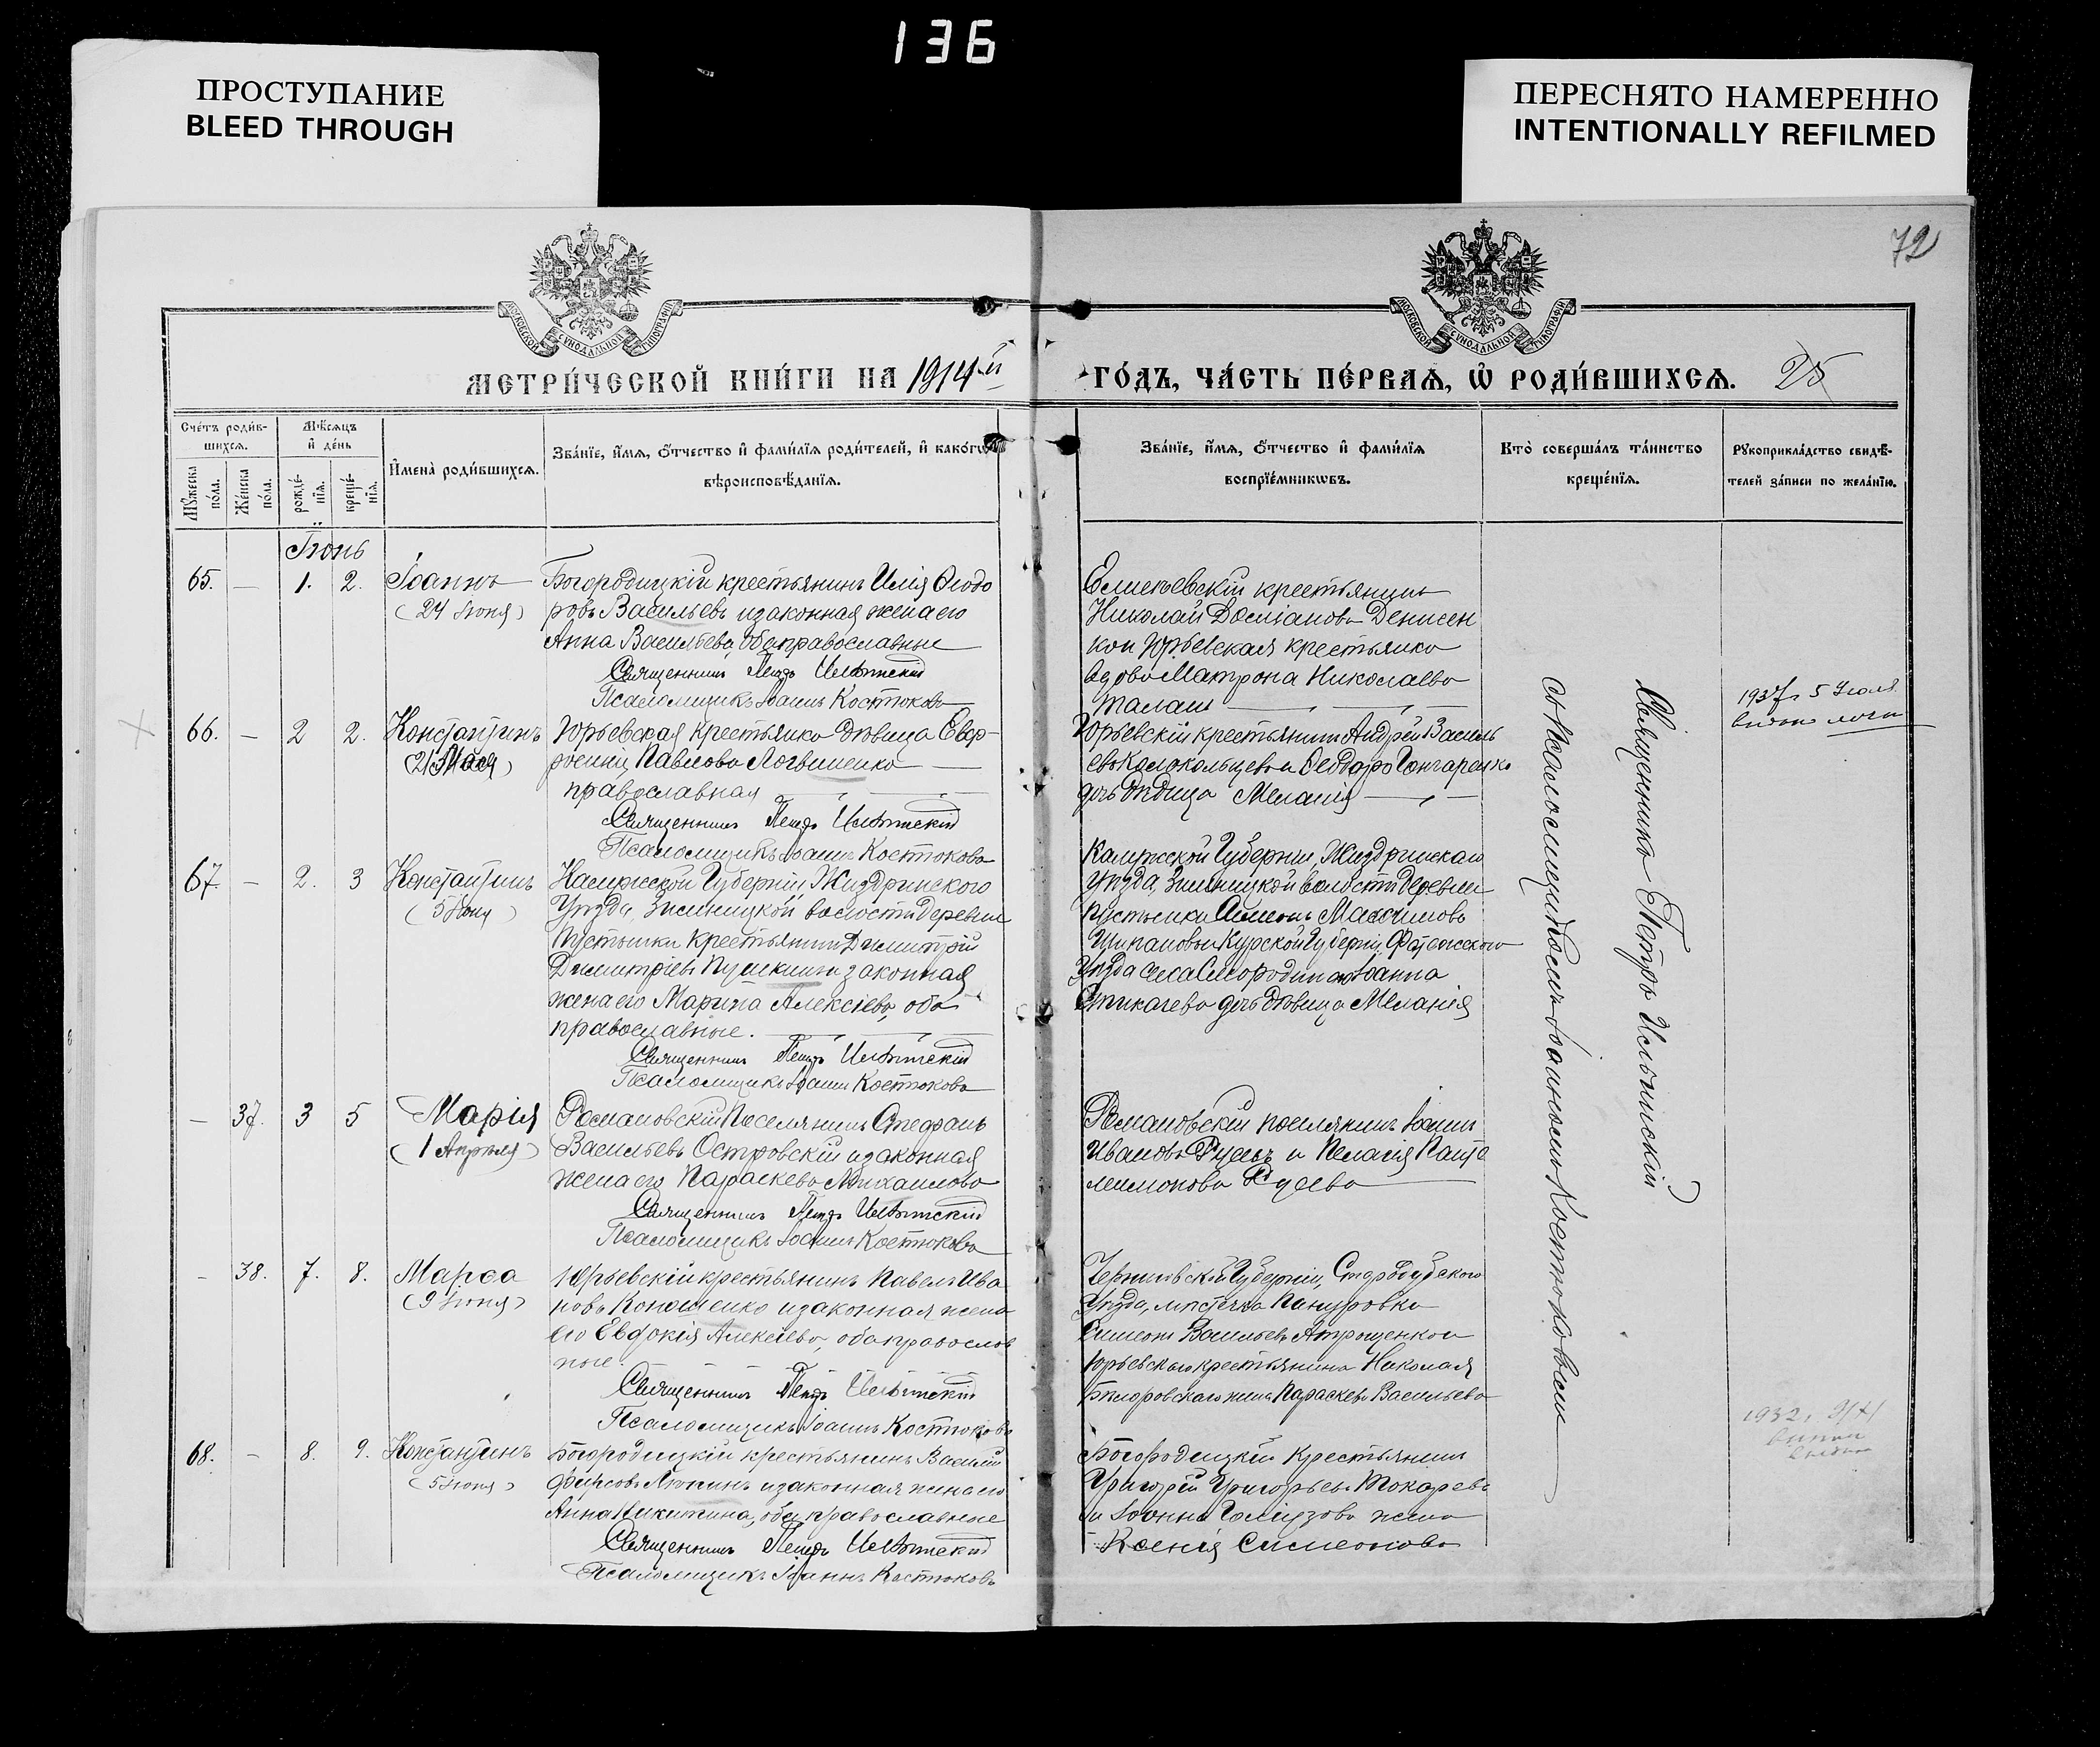 136
ПРОСТУПАНИЕ
BLEED THROUGH
ПЕРЕСНЯТО НАМЕРЕННО
INTENTIONALLY REFILMED
72
МОСКОВСКОЙ СѴНОДАЛЬНОЙ ТИПОГРАФІИ
МОСКОВСКОЙ СѴНОДАЛЬНОЙ ТИПОГРАФІИ
МЕТРИ́ЧЕСКОЙ КНИ́ГИ НА 1914-й
ГО́ДЪ, ЧА́СТЬ ПЕ́РВАѦ, Ѡ҆ РОДИ́ВШИХСѦ. 25
Сче́тъ роди́в-
шихсѧ.
Мѣ́сѧцъ
и҆ де́нь
Мꙋ́жеска
по́ла.
Же́нска
по́ла.
рожде́-
нїѧ.
креще́-
нїѧ.
И҆мена̀ роди́вшихсѧ.
Зва́нїе, и҆́мѧ, ѻ҆́тчество и҆ фами́лїѧ роди́телей, и҆ како́гѡ
вѣроисповѣ́данїѧ.
Зва́нїе, и҆́мѧ, ѻ҆́тчество и҆ фами́лїѧ
воспрїе́мникѡвъ.
Кто̀ соверша́лъ та́инство
креще́нїѧ.
Рꙋкоприкла́дство свидѣ́-
телей за́писи по жела́нїю.
Іюнь
65. — 1. 2. Іоаннъ
(24 Іюня)
Богородицкій крестьянинъ Илія Ѳеодо
ровъ Васильевъ и законная жена его
Анна Васильева, оба православные
Священникъ Петръ Ильинскій
Псаломщикъ Іоаннъ Костюковъ
крестьянинъ
Николай Даміановъ Денисен
ко и Юрьевская крестьянка
вдова Матрона Николаева
Талань
66. — 2 2. Константинъ
(21 Мая)
Юрьевская крестьянка дѣвица Евф-
росинія Павлова Логвиненко
православная
Священникъ Петръ Ильинскій
Псаломщикъ Іоаннъ Костюковъ
Юрьевскій крестьянинъ Андрей Василь
евъ Колокольцевъ и Ѳеодора Гончаренко
дочь дѣвица Меланія
1937г. 5 Іюля
67. — 2. 3 Константинъ
(5 Іюня)
Калужской Губерніи, Жиздринского
Уѣзда, Зикницкой волости деревни
Пустынки крестьянинъ Димитрій
Димитріевъ и законная
жена его Марина Алексіева, оба
православные.
Священникъ Петръ Ильинскій
Псаломщикъ Іоаннъ Костюковъ
Калужской Губерніи, Жиздринскаго
Уѣзда, Зикницкой волости деревни
Пустынки Симеонъ Максимовъ
и Курской Губерніи, Фатежскаго
Уѣзда села Іоанна
дочь дѣвица Меланія
— 37. 3 5 Марія
(1 Апрѣля)
Романовскій поселянинъ Стефанъ
Васильевъ Островскій и законная
жена его Параскева Михаилова
Священникъ Петръ Ильинскій
Псаломщикъ Іоаннъ Костюковъ
Романовскій поселянинъ Іоаннъ
Ивановъ Русевъ и Пелагія Панте
леимонова Русева
- 38. 7. 8. Марѳа
(9 Іюня)
Юрьевскій крестьянинъ Павелъ Ива
новъ Кононенко и законная жена
его Евдокія Алексіева, оба православ
ные.
Священникъ Петръ Ильинскій
Псаломщикъ Іоаннъ Костюковъ
Черниговской Губерніи, Стародубского
Уѣзда, мѣстечка Понуровка
Симеонъ Васильевъ Атрощенко и
Юрьевскаго крестьянина Николая
жена Параскева Васильева
68. — 8. 9. Константинъ
(5 Іюня)
Богородицкій крестьянинъ Василій
Фирсовъ и законная жена его
Анна Никитина, оба православные
Священникъ Петръ Ильинскій
Псаломщикъ Іоаннъ Костюковъ
Богородицкій крестьянинъ
Григорій Григорьевъ Токаревъ
и Іоанна жена
Ксенія Симеонова
1932,
Священникъ Петръ Ильинскій
съ Псаломщикомъ Іоанномъ Костюковымъ